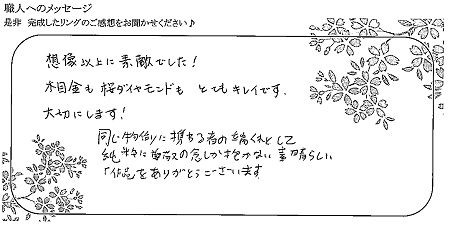 職人へのメッセージ
是非 完成したリングのご感想をお聞かせください♪
想像以上に素敵でした！
木目金も桜ダイヤモンドも とてもキレイです。
大切にします！
同じ物作りに携わる者の端くれとして
純粋に尊敬の念しか抱かない素晴らしい
作品をありがとうございます